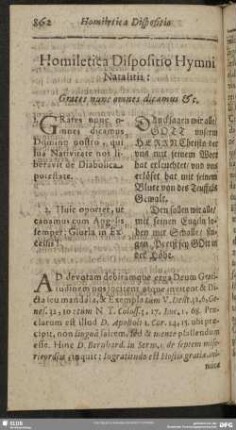 862 Homiletica Dispositio
Homiletica Dispositio Hymni
Natalitii:
Grates nunc omnes dicamus &c.
1. GRates nunc o-
mnes dicamus
Domino nostro, qui
sua Nativitate nos li-
beravit de Diabolica
potestate.
2. Huic oportet, ut
canamus cum Angelis
semper; Gloria in Ex-
celsis.
GOTT unserm
HERRN Christo der
uns mit seinem Wort
hat erleuchtet und uns
erlöset hat mit seinem
Blute von des Teuffels
Gewalt.
Den sollen wir alle
mit seinen Engeln lo-
ben mit Schalle; sin-
gen, Preiß sey GOtt in
der Höhe.
AD devotam debitamque erga Deum Grati-
tudinem nos incitent atque invitent &
Dicta seu mandata, & Exempla tum V. Test.
tum N. T. Coloss. 3, 17. Luc. 1, 68. Præ-
clarum est illud D. Apostoli 1. Cor. 14, 15. ubi præ-
cipit, non lingvâ solùm, sed & mente psallendum
esse. Hinc D. Bernhard. in Serm. de septem mise-
ricordiis inquit: Ingratitudo est Hostis gratiæ,